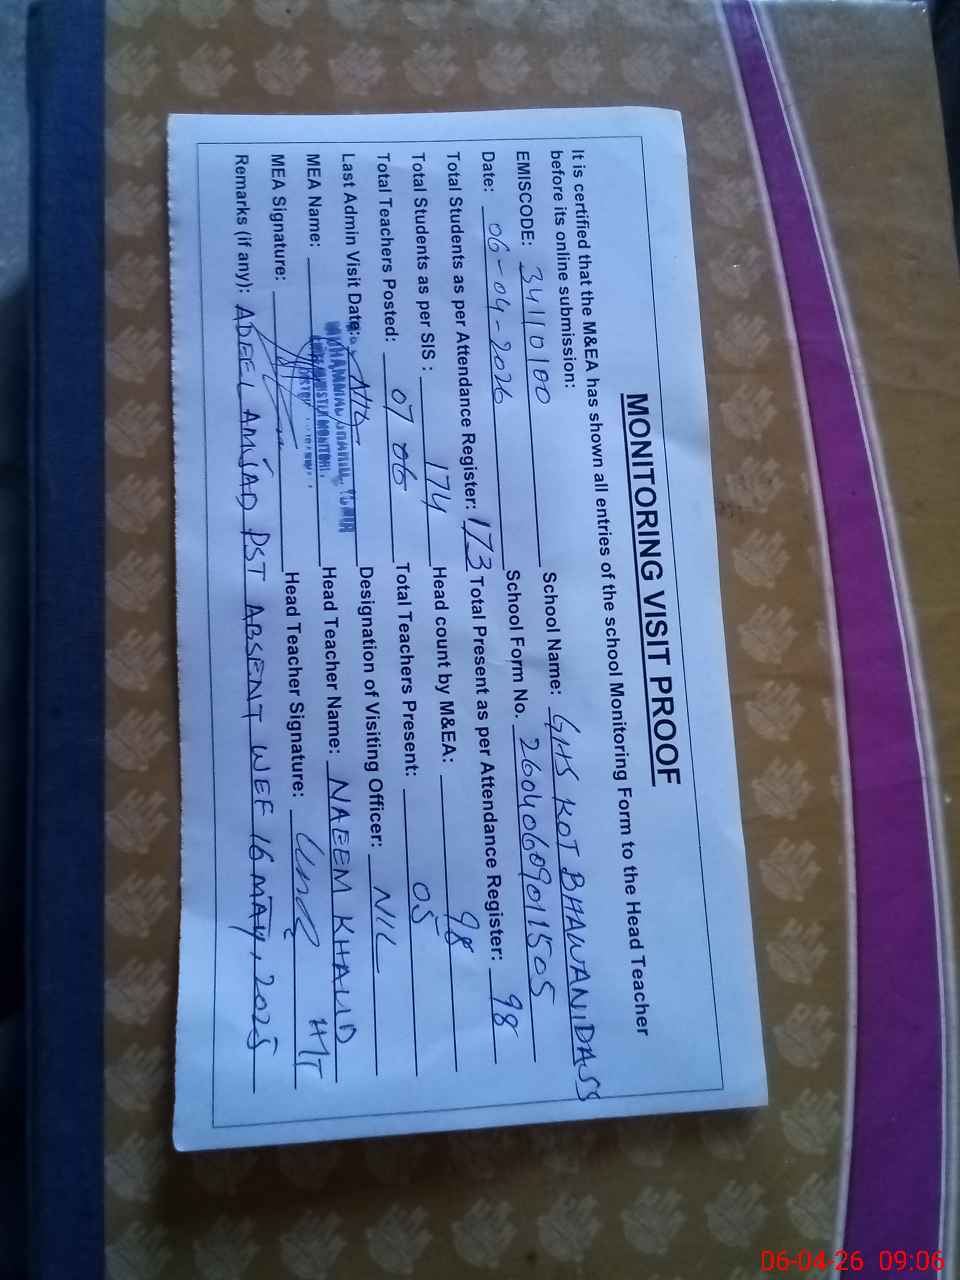 MONITORING VISIT PROOF
It is certified that the M&EA has shown all entries of the school Monitoring Form to the Head Teacher
before its online submission:
EMISCODE: 34110100 School Name: GHS KOT BHAWANIDASS
Date: 06-04-2026 School Form No. 26040609011505
Total Students as per Attendance Register: 173 Total Present as per Attendance Register: 98
Total Students as per SIS : 174 Head count by M&EA: 98
Total Teachers Posted: 07 06 Total Teachers Present: 05
Last Admin Visit Date: Nil Designation of Visiting Officer: NIL
MEA Name: MUHAMMAD Head Teacher Name: NAEEM KHALID
MEA Signature: Head Teacher Signature: HT
Remarks (if any): ADEEL AMJAD PST ABSENT WEF 16 MAY, 2025
06-04-26 09:06